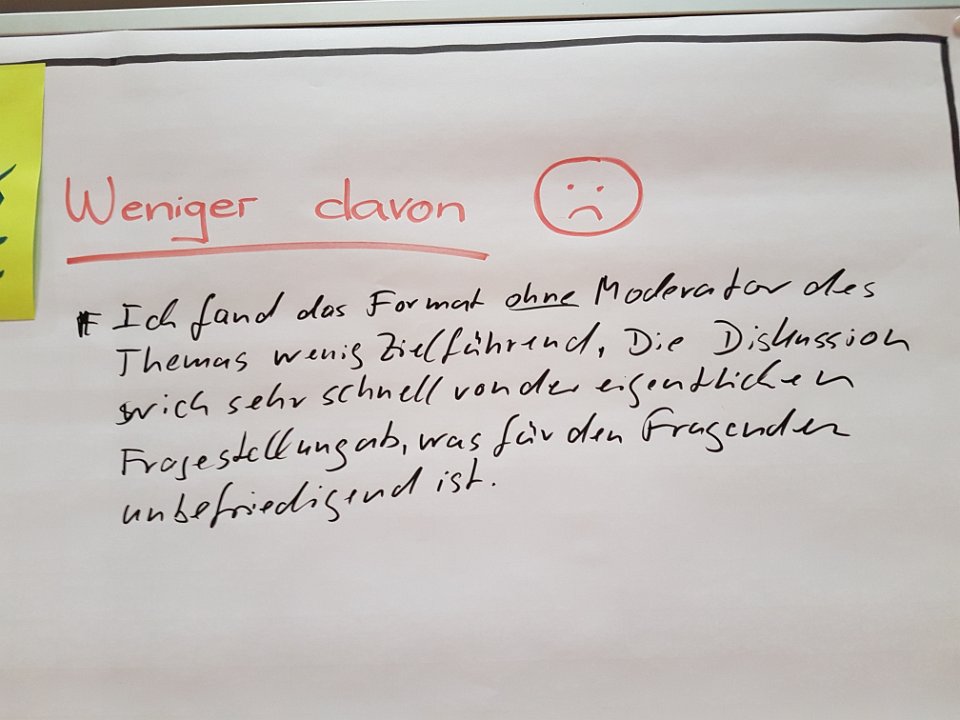 Weniger davon
* Ich fand das Format ohne Moderator des
Themas wenig Zielführend. Die Diskussion
wich sehr schnell von der eigentlichen
Fragestellung ab, was für den Fragenden
unbefriedigend ist.